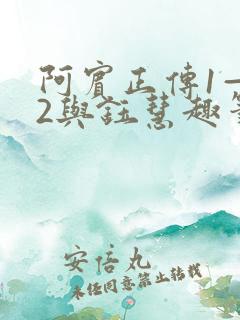 阿賓正傳1—
2與鈺慧趣
安倍丸
未经同意禁止转载